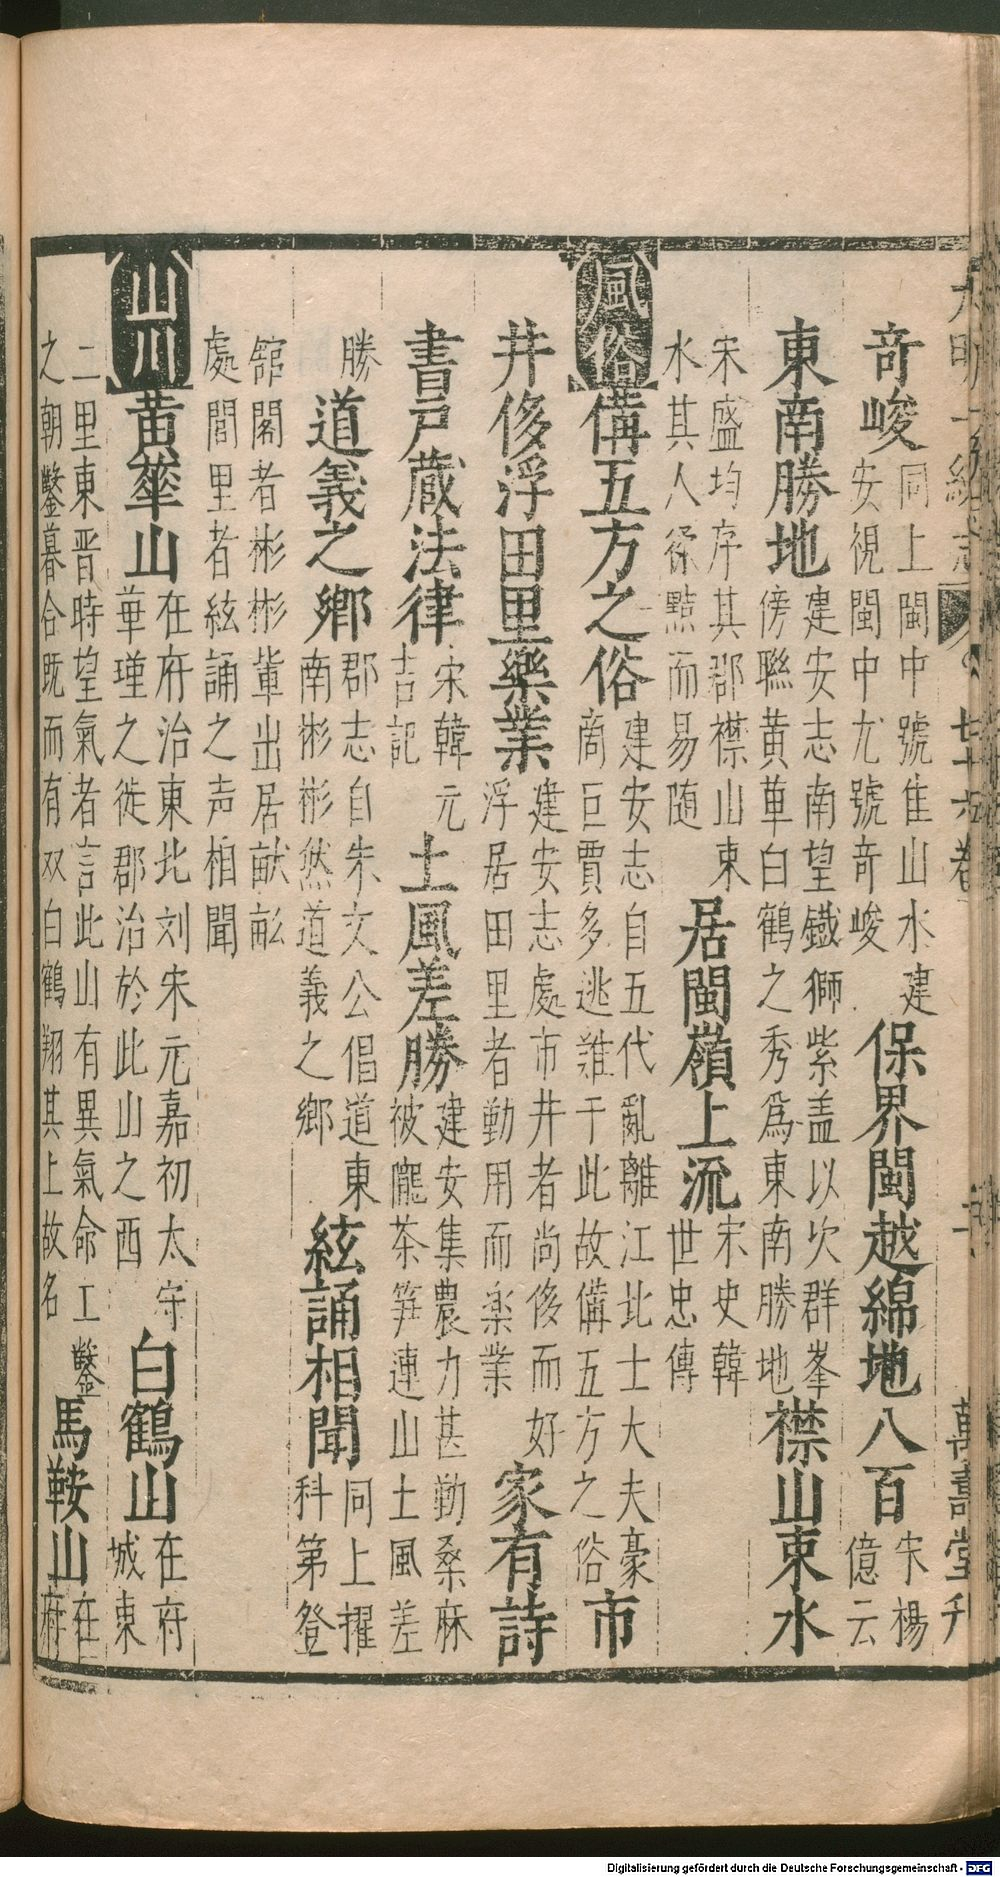 大明一統志 七十六卷 二 萬壽堂刊
奇峻同上閩中號佳山水建安視閩中尤號奇峻保界閩越綿地八百宋楊億云
東南勝地建安志南望鐵獅紫盖以次群峯傍聯黄華白鶴之秀為東南勝地襟山束水
宋盛均序其郡襟山束水其人猝黠而易随居閩嶺上流宋史韓世忠傳
風俗備五方之俗建安志自五代亂離江北士大夫豪商巨賈多逃難于此故備五方之俗市
井侈浮田里樂業建安志處市井者尚侈而好浮居田里者勤用而楽業家有詩
書戸蔵法律宋韓元吉記土風差勝建安集農力甚勤桑麻被隴茶笋連山土風差
勝道義之鄉郡志自朱文公倡道東南彬彬然道義之鄉絃誦相聞同上擢科第登
舘閣者彬彬軰出居畎畝處閭里者絃誦之声相聞
山川黄華山在府治東北刘宋元嘉初太守華瑾之徙郡治於此山之西白鶴山在府城東
二里東晋時望氣者言此山有異氣命工鑿之朝鑿暮合既而有双白鶴翔其上故名馬鞍山在府
Digitalisierung gefördert durch die Deutsche Forschungsgemeinschaft - DFG